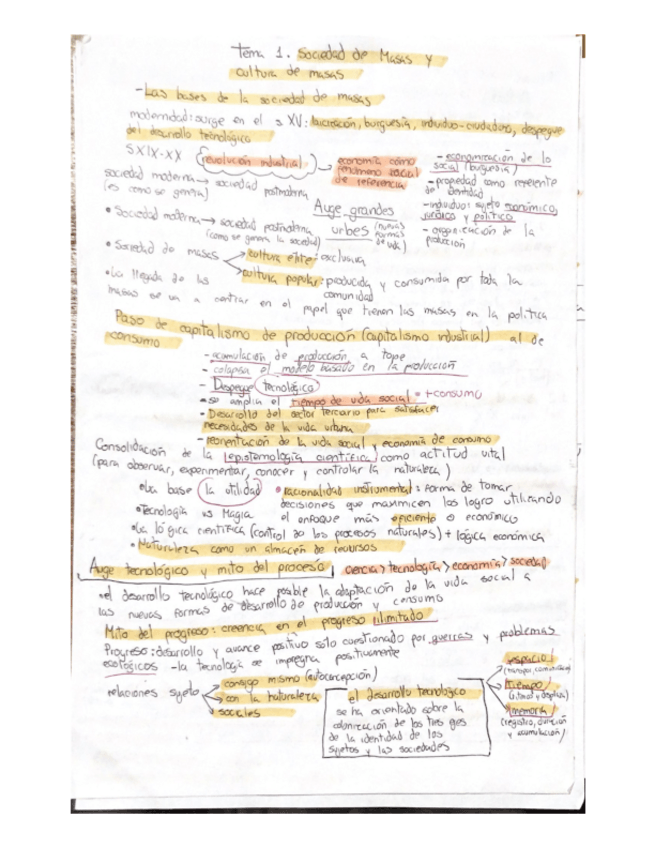 Tema 1. Sociedad de Masas y
cultura de masas
- Las bases de la sociedad de masas
modernidad: surge en el s XV: laicización, burguesía, individuo-ciudadano, despegue
del desarrollo tecnológico
S XIX-XX (revolución industrial) → economía como
fenómeno social
de referencia
- economización de lo
social (burguesía)
- propiedad como referente
de identidad
- individuo: sujeto económico,
jurídico y político
- organización de la
producción
sociedad moderna → sociedad postmoderna
(es como se genera)
• Sociedad moderna → sociedad postmoderna
(como se genera la sociedad)
Auge grandes
urbes (nuevas
formas
de vida)
• Sociedad de masas
cultura élite: exclusiva
cultura popular: producida y consumida por toda la
comunidad
• La llegada de las
masas se va a centrar en el papel que tienen las masas en la política
Paso de capitalismo de producción (capitalismo industrial) al de
consumo
- acumulación de producción a tope
- colapsa el modelo basado en la producción
- Despegue tecnológico
• se amplía el tiempo de vida social = +consumo
- Desarrollo del sector terciario para satisfacer
necesidades de la vida urbana
- reorientación de la vida social y economía de consumo
Consolidación de la epistemología científica como actitud vital
(para observar, experimentar, conocer y controlar la naturaleza)
• La base la utilidad • racionalidad instrumental: forma de tomar
decisiones que maximicen los logro utilizando
el enfoque más eficiente o económico
• Tecnología vs Magia
• La lógica científica (control de los procesos naturales) + lógica económica
• Naturaleza como un almacén de recursos
Auge tecnológico y mito del proceso ciencia > tecnología > economía > sociedad
• el desarrollo tecnológico hace posible la adaptación de la vida social a
las nuevas formas de desarrollo de producción y consumo
Mito del progreso: creencia en el progreso ilimitado
Progreso: desarrollo y avance positivo solo cuestionado por guerras y problemas
ecológicos - la tecnología se impregna positivamente
relaciones sujeto
consigo mismo (autoconcepción)
con la naturaleza
sociales
el desarrollo tecnológico
se ha orientado sobre la
colonización de los tres ejes
de la identidad de los
sujetos y las sociedades
espacio
tiempo
memoria
(registro, duración
y acumulación)